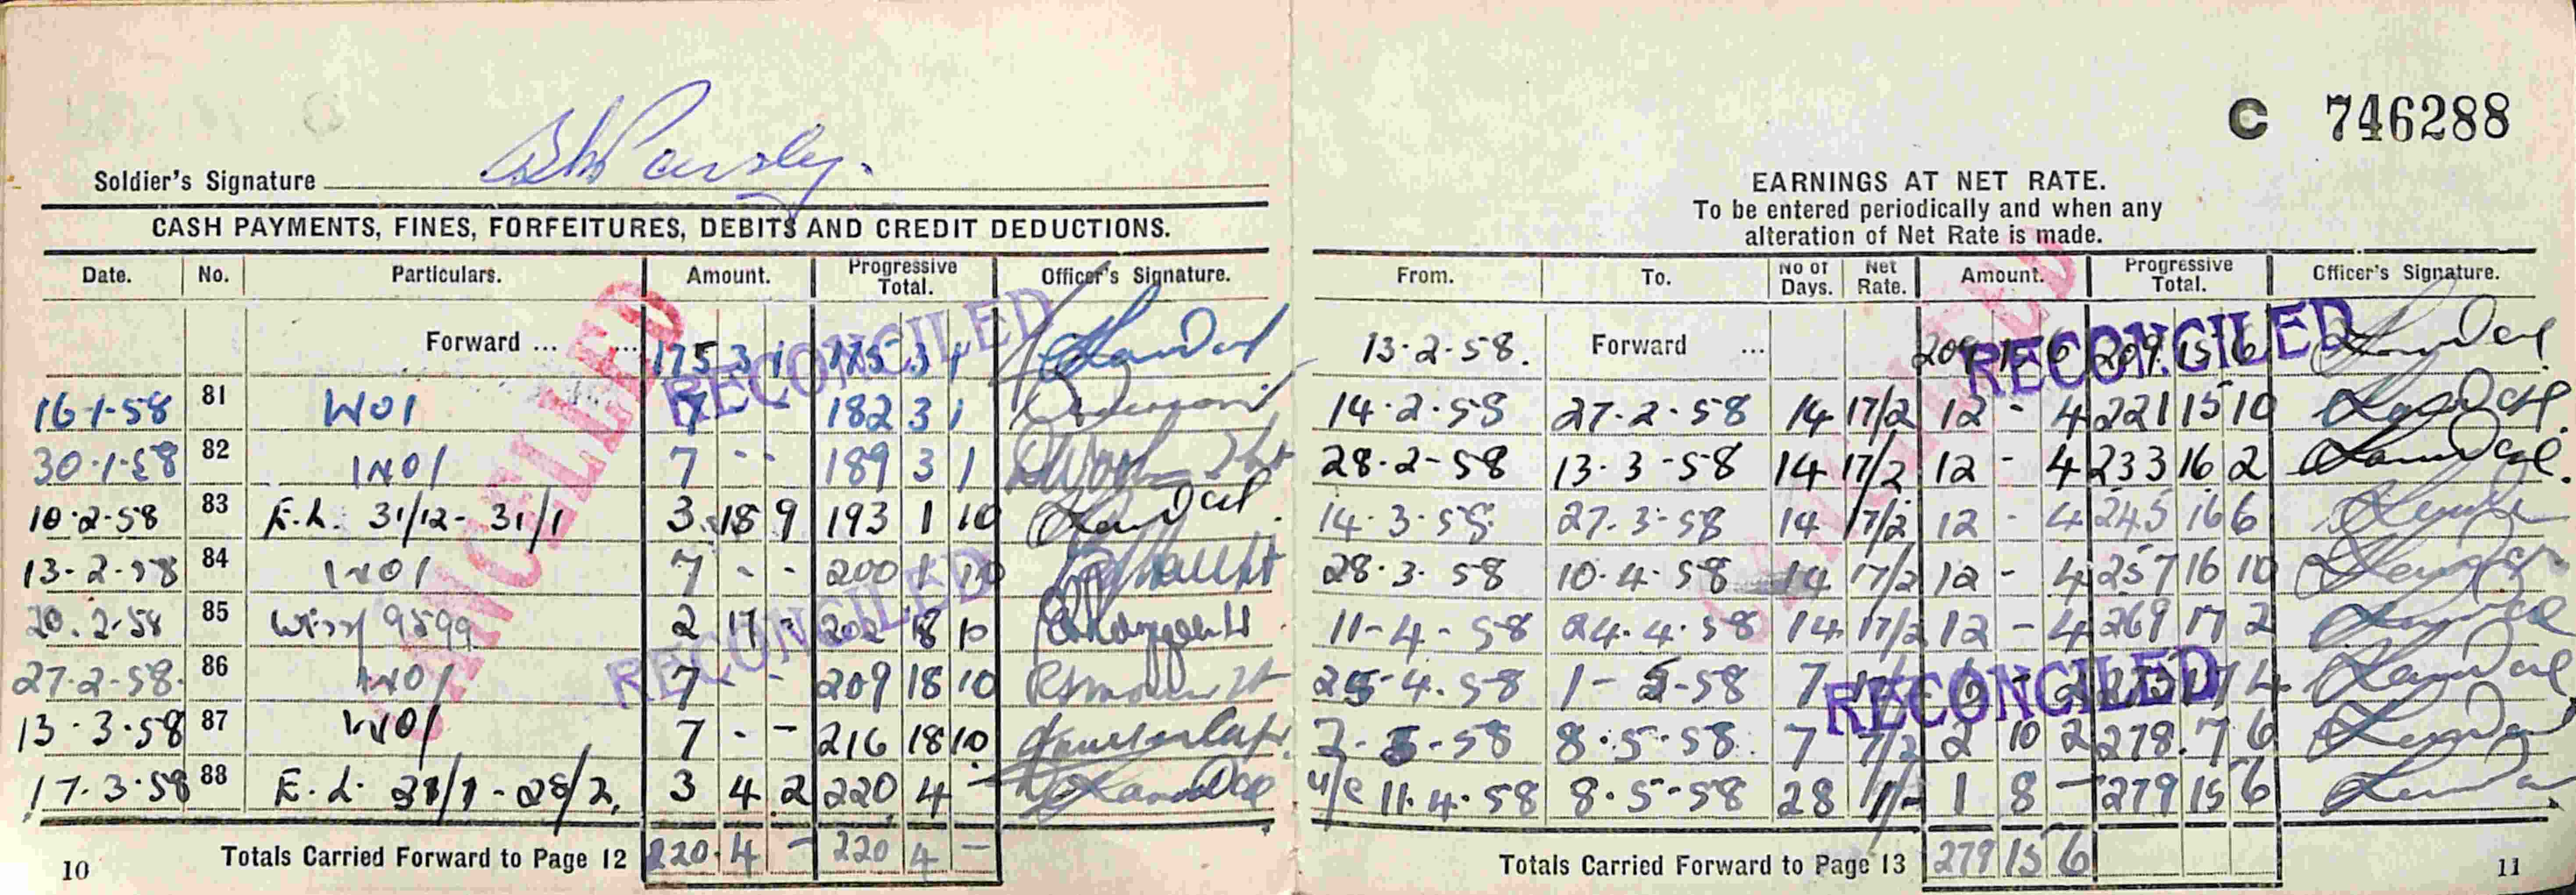 C 746288
Soldier's Signature
CASH PAYMENTS, FINES, FORFEITURES, DEBITS AND CREDIT DEDUCTIONS.
Date. No. Particulars. Amount. Progressive Total. Officer's Signature.
Forward ... ... 175 3 1 175 3 1
16-1-58 81 W01 7 182 3 1
30-1-58 82 W01 7 - - 189 3 1
10-2-58 83 E.L. 31/12 - 31/1 3 18 9 193 1 10
13-2-58 84 W01 7 - - 200 1 10
20.2-58 85 9599 2 17 - 202 18 10
27-2-58. 86 W01 7 - - 209 18 10
13-3-58 87 W01 7 - - 216 18 10
17-3-58 88 E.L. 31/1 - 28/2. 3 4 2 220 4 -
Totals Carried Forward to Page 12 220 4 - 220 4 -
10
CANCELLED
RECONCILED
RECONCILED
EARNINGS AT NET RATE.
To be entered periodically and when any
alteration of Net Rate is made.
From. To. No of Days. Net Rate. Amount. Progressive Total. Officer's Signature.
13-2-58. Forward ... 209 15 6 209 15 6
14-2-58 27-2-58 14 17/2 12 - 4 221 15 10
28-2-58 13-3-58 14 17/2 12 - 4 233 16 2
14-3-58 27-3-58 14 17/2 12 - 4 245 16 6
28-3-58 10-4-58 14 17/2 12 - 4 257 16 10
11-4-58 24-4-58 14 17/2 12 - 4 269 17 2
25-4-58 1-5-58 7 17/2 6 - 2 275 17 4
2-5-58 8-5-58 7 7/2 2 10 2 278 7 6
u/c 11-4-58 8-5-58 28 1/- 1 8 - 279 15 6
Totals Carried Forward to Page 13 279 15 6
11
CANCELLED
RECONCILED
RECONCILED